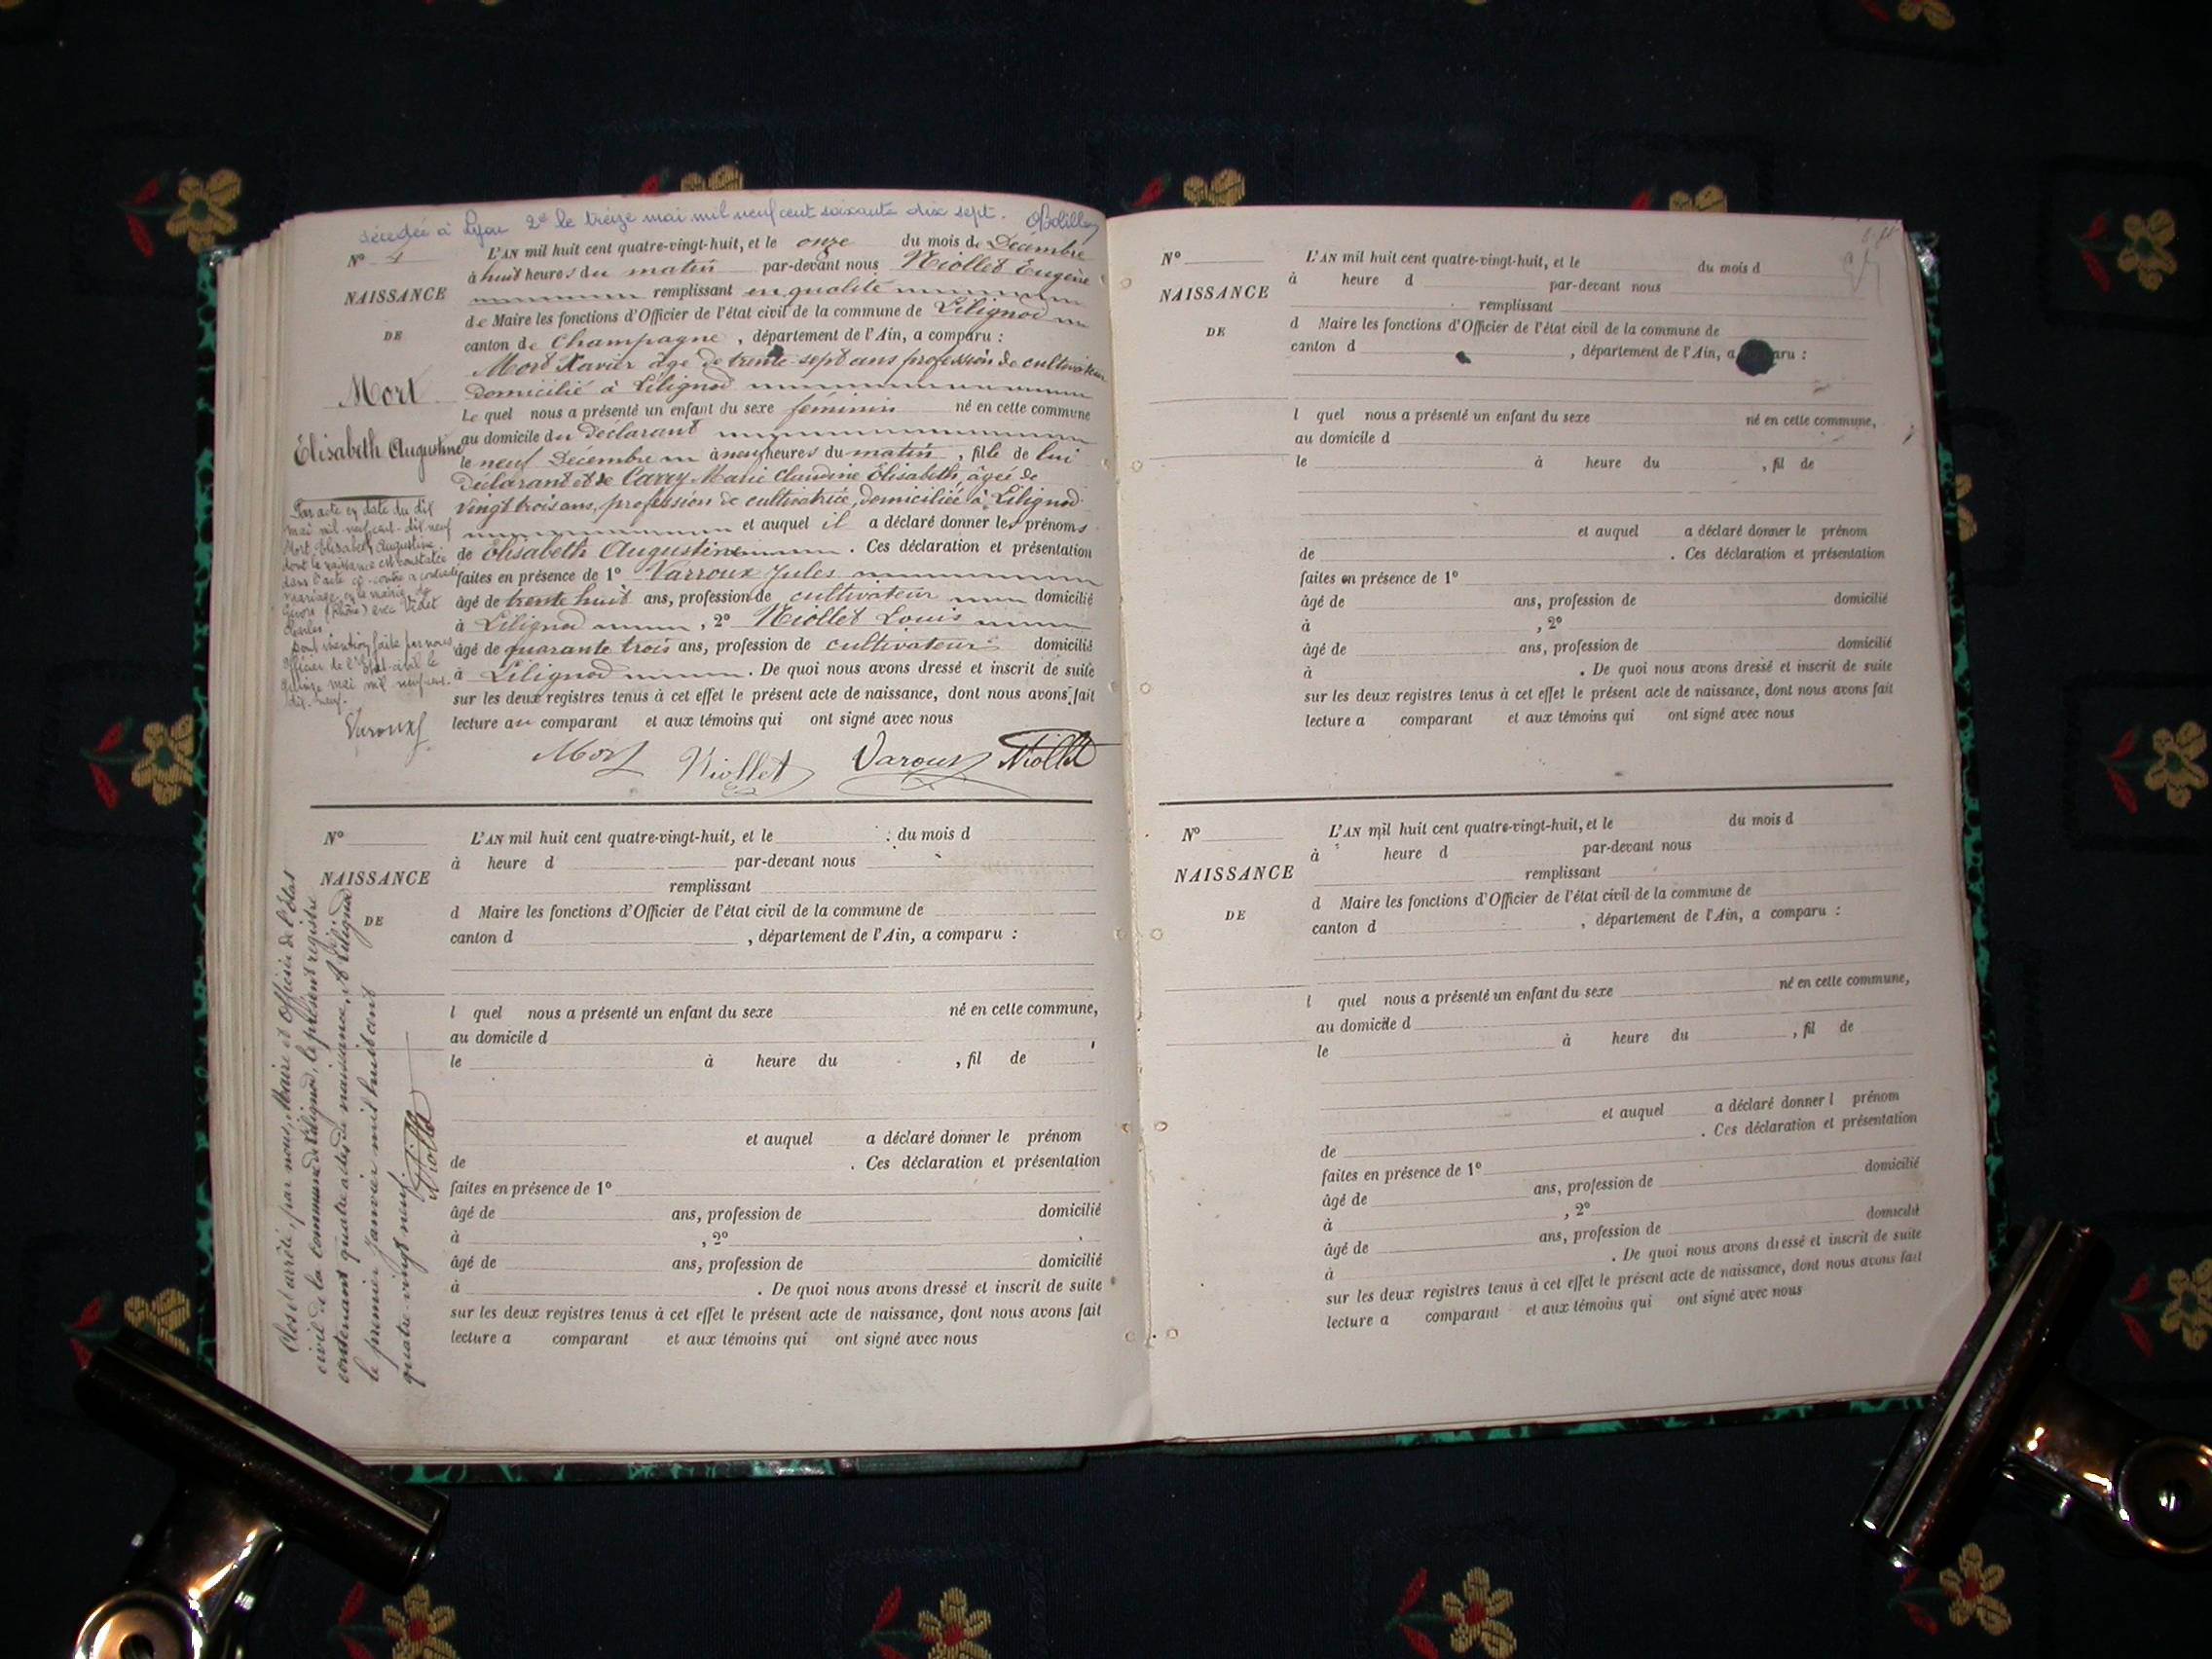 décédée à Lyon 2e le treize mai mil neuf cent soixante dix sept.
N° 4
NAISSANCE
DE
Mort
Élisabeth Augustine
L'AN mil huit cent quatre-vingt-huit, et le onze du mois de Décembre
à huit heures du matin par-devant nous Niollet Eugène
remplissant en qualité
de Maire les fonctions d'Officier de l'état civil de la commune de Lilignod
canton de Champagne, département de l'Ain, a comparu :
Mort Xavier âgé de trente-sept ans profession de cultivateur
domicilié à Lilignod
Le quel nous a présenté un enfant du sexe féminin né en cette commune
au domicile du déclarant
le neuf Décembre à neuf heures du matin, fille de lui
déclarant et de Carry Marie Claudine Élisabeth, âgée de
vingt trois ans, profession de cultivatrice, domiciliée à Lilignod
et auquel il a déclaré donner les prénoms
de Élisabeth Augustine. Ces déclaration et présentation
faites en présence de 1° Varroux Jules
âgé de trente huit ans, profession de cultivateur domicilié
à Lilignod, 2° Niollet Louis
âgé de quarante trois ans, profession de cultivateur domicilié
à Lilignod. De quoi nous avons dressé et inscrit de suite
sur les deux registres tenus à cet effet le présent acte de naissance, dont nous avons fait
lecture au comparant et aux témoins qui ont signé avec nous
Mort Niollet Varoux Niollet
Par acte en date du dix
mai mil neuf cent dix neuf
Mort Élisabeth Augustine
dont la naissance est constatée
dans l'acte ci-contre a contracté
mariage en la mairie de
Givors (Rhône) avec
Charles
Dont mention faite par nous
Officier de l'État-civil le
quinze mai mil neuf cent
dix-neuf.
Varoux
N°
NAISSANCE
DE
L'AN mil huit cent quatre-vingt-huit, et le du mois d
à heure d par-devant nous
remplissant
d Maire les fonctions d'Officier de l'état civil de la commune de
canton d , département de l'Ain, a comparu :
l quel nous a présenté un enfant du sexe né en cette commune,
au domicile d
le à heure du , fil de
et auquel a déclaré donner le prénom
de . Ces déclaration et présentation
faites en présence de 1°
âgé de ans, profession de domicilié
à , 2°
âgé de ans, profession de domicilié
à . De quoi nous avons dressé et inscrit de suite
sur les deux registres tenus à cet effet le présent acte de naissance, dont nous avons fait
lecture a comparant et aux témoins qui ont signé avec nous
Clos et arrêté, par nous, Maire et Officier de l'État
civil de la commune de Lilignod, le présent registre
contenant quatre actes de naissance, A Lilignod
le premier Janvier mil huit cent
quatre-vingt neuf.
Niollet
N°
NAISSANCE
DE
L'AN mil huit cent quatre-vingt-huit, et le du mois d
à heure d par-devant nous
remplissant
d Maire les fonctions d'Officier de l'état civil de la commune de
canton d , département de l'Ain, a aru :
l quel nous a présenté un enfant du sexe né en cette commune,
au domicile d
le à heure du , fil de
et auquel a déclaré donner le prénom
de . Ces déclaration et présentation
faites en présence de 1°
âgé de ans, profession de domicilié
à , 2°
âgé de ans, profession de domicilié
à . De quoi nous avons dressé et inscrit de suite
sur les deux registres tenus à cet effet le présent acte de naissance, dont nous avons fait
lecture a comparant et aux témoins qui ont signé avec nous
N°
NAISSANCE
DE
L'AN mil huit cent quatre-vingt-huit, et le du mois d
à heure d par-devant nous
remplissant
d Maire les fonctions d'Officier de l'état civil de la commune de
canton d , département de l'Ain, a comparu :
l quel nous a présenté un enfant du sexe né en cette commune,
au domicile d
le à heure du , fil de
et auquel a déclaré donner l prénom
de . Ces déclaration et présentation
faites en présence de 1°
âgé de ans, profession de domicilié
à , 2°
âgé de ans, profession de domicilié
à . De quoi nous avons dressé et inscrit de suite
sur les deux registres tenus à cet effet le présent acte de naissance, dont nous avons fait
lecture a comparant et aux témoins qui ont signé avec nous